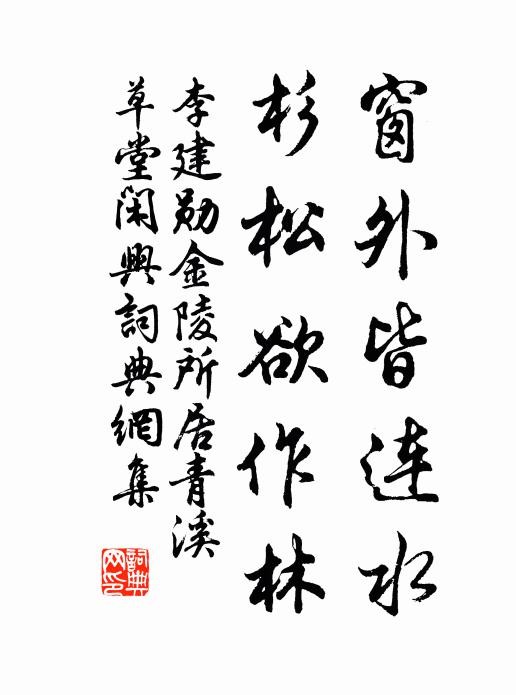 窗外皆连水
杉松欲作林
李建勋金陵所居青溪
草堂闲興詞典網集
詞典网印